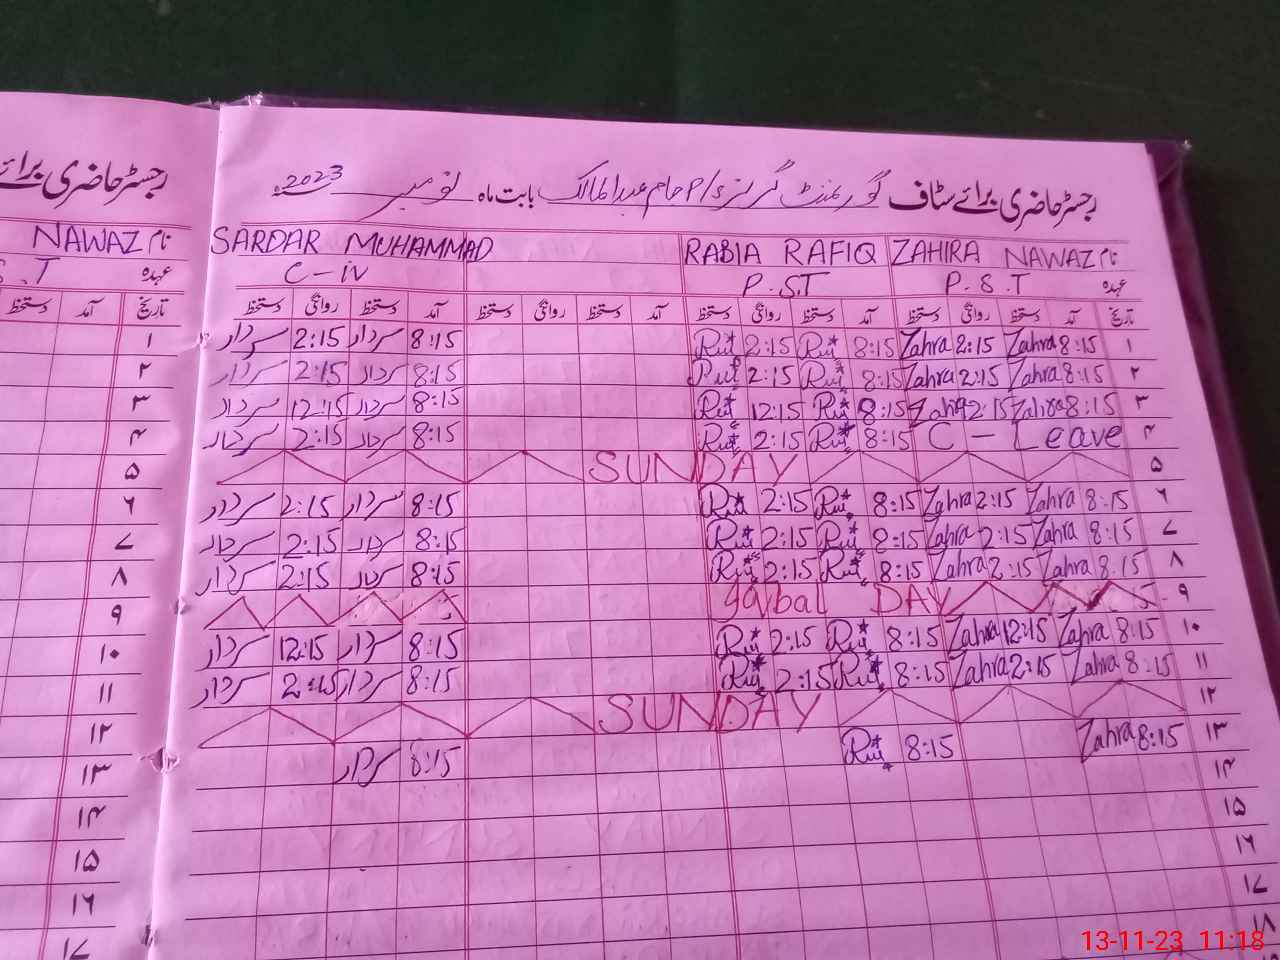 رجسٹر حاضری برائے
رجسٹر حاضری برائے سٹاف گورنمنٹ گرلز P/S جام عبدالمالک بابت ماہ نومبر 2023ء
NAWAZ نام
SARDAR MUHAMMAD RABIA RAFIQ ZAHIRA NAWAZ نام
S.T عہدہ
C-iv P.S.T P.S.T عہدہ
دستخط آمد تاریخ
دستخط روانگی دستخط آمد دستخط روانگی دستخط آمد دستخط روانگی دستخط آمد دستخط روانگی دستخط آمد تاریخ
سردار 2:15 سردار 8:15 Rui 2:15 Rui 8:15 Zahra 2:15 Zahra 8:15 ۱
سردار 2:15 سردار 8:15 Rui 2:15 Rui 8:15 Zahra 2:15 Zahra 8:15 ۲
سردار 12:15 سردار 8:15 Rui 12:15 Rui 8:15 Zahra 12:15 Zahra 8:15 ۳
سردار 2:15 سردار 8:15 Rui 2:15 Rui 8:15 C - Leave ۴
SUNDAY ۵
سردار 2:15 سردار 8:15 Rui 2:15 Rui 8:15 Zahra 2:15 Zahra 8:15 ۶
سردار 2:15 سردار 8:15 Rui 2:15 Rui 8:15 Zahra 2:15 Zahra 8:15 ۷
سردار 2:15 سردار 8:15 Rui 2:15 Rui 8:15 Zahra 2:15 Zahra 8:15 ۸
iqbal DAY ۹
سردار 12:15 سردار 8:15 Rui 2:15 Rui 8:15 Zahra 12:15 Zahra 8:15 ۱۰
سردار 2:15 سردار 8:15 Rui 2:15 Rui 8:15 Zahra 2:15 Zahra 8:15 ۱۱
SUNDAY ۱۲
سردار 8:15 Rui 8:15 Zahra 8:15 ۱۳
۱۴
۱۵
۱۶
۱۷
۱۸
۱
۲
۳
۴
۵
۶
۷
۸
۹
۱۰
۱۱
۱۲
۱۳
۱۴
۱۵
۱۶
۱۷
13-11-23 11:18